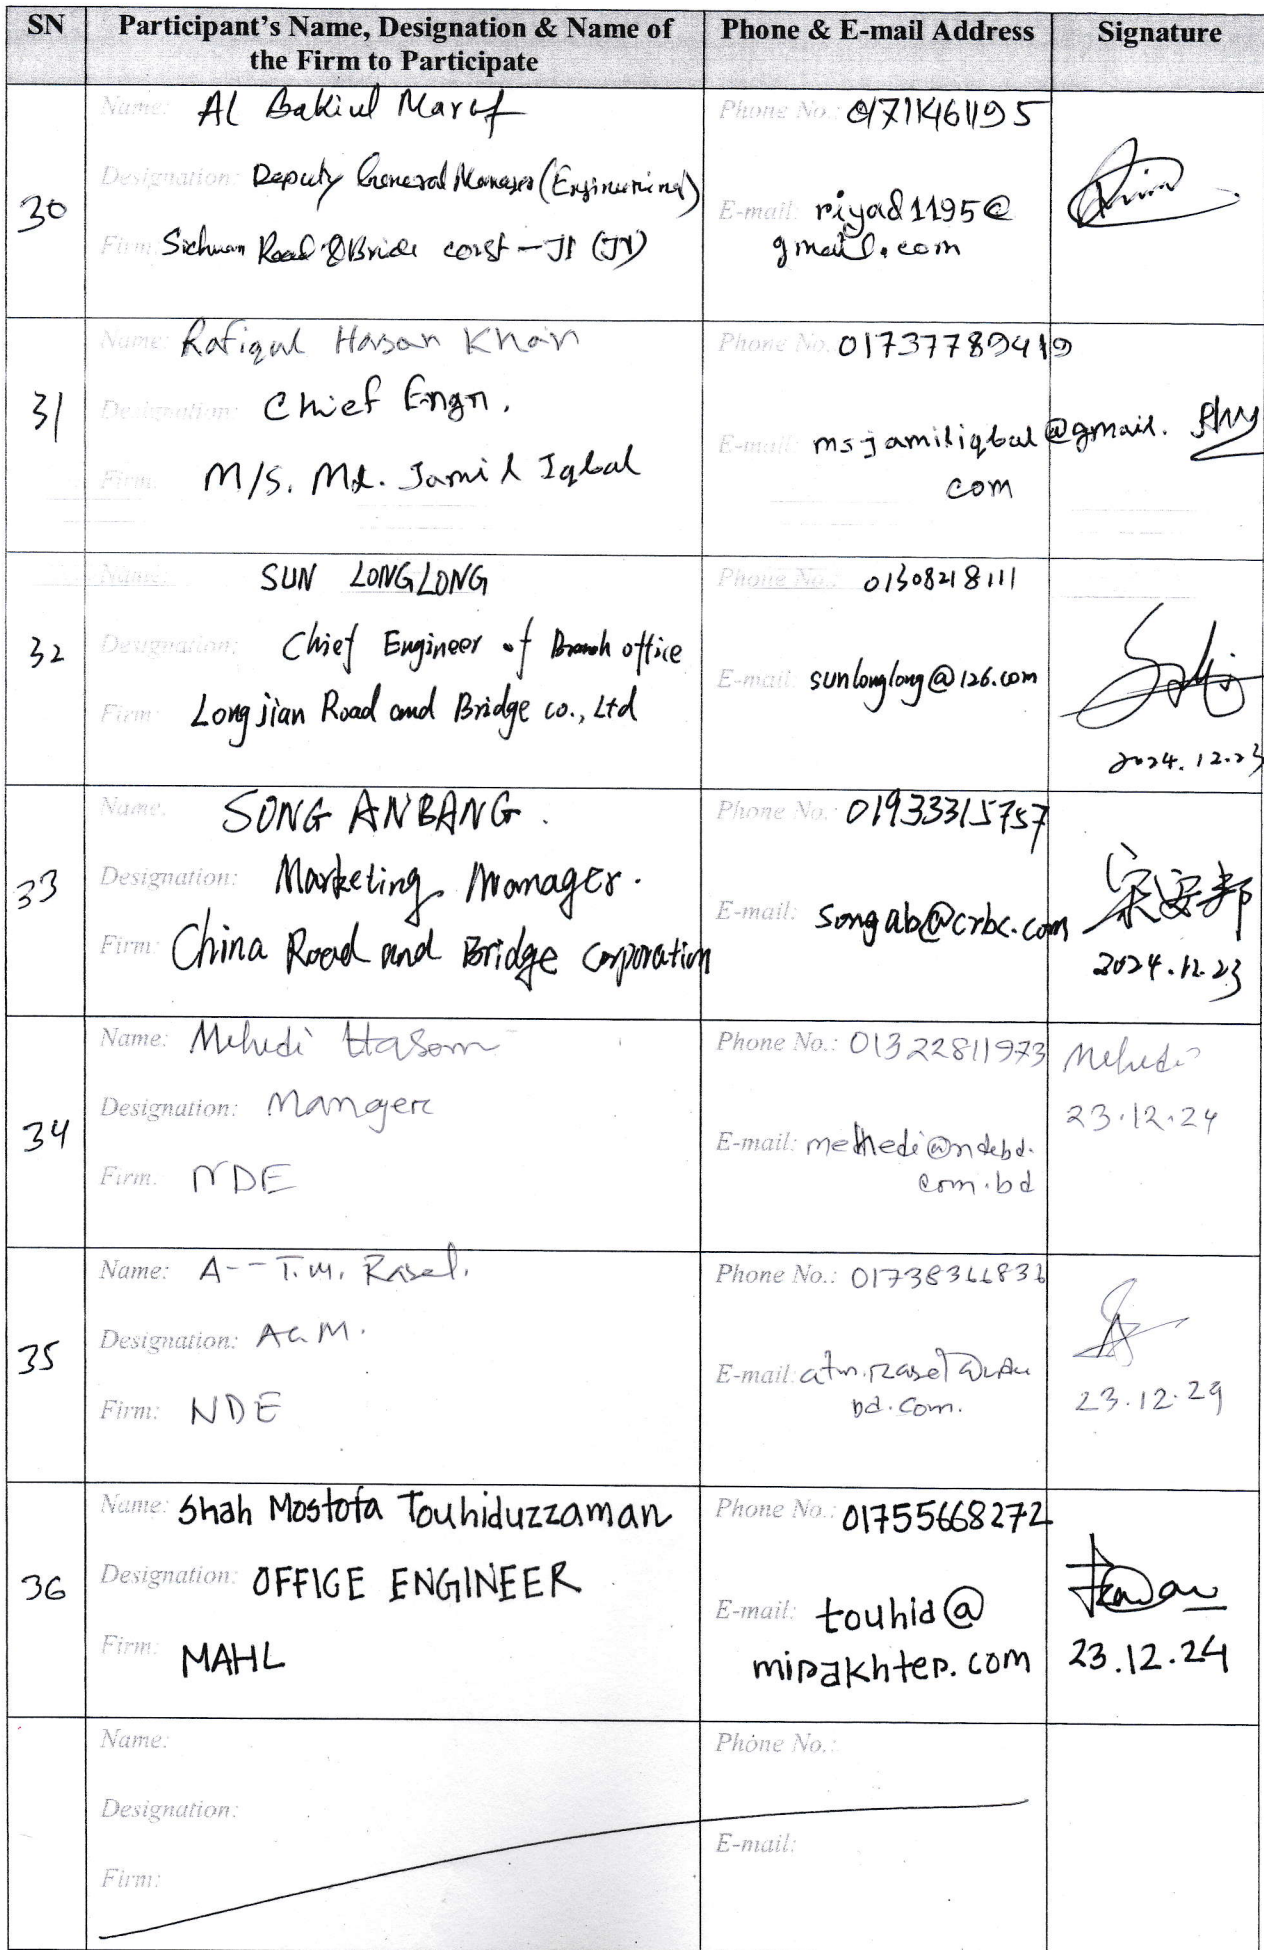 SN Participant's Name, Designation & Name of the Firm to Participate Phone & E-mail Address Signature
30
Name: Al Bakiul Maruf
Designation: Deputy General Manager (Engineering)
Firm: Sichuan Road & Bride const - JI (JV)
Phone No.: 01711461195
E-mail: riyad1195@
gmail.com
31
Name: Rafiqul Hasan Khan
Designation: Chief Engn.
Firm: M/S. Md. Jamil Iqbal
Phone No. 01737789419
E-mail: msjamiliqbal@gmail.
com
32
Name: SUN LONGLONG
Designation: Chief Engineer of Branch office
Firm: Longjian Road and Bridge co., Ltd
Phone No.: 01308218111
E-mail: sunlonglong@126.com
2024.12.23
33
Name: SONG ANBANG.
Designation: Marketing Manager.
Firm: China Road and Bridge Corporation
Phone No.: 01933315757
E-mail: songab@crbc.com
宋安邦
2024.12.23
34
Name: Mehedi Hasan
Designation: Manger
Firm: NDE
Phone No.: 01322811973
E-mail: mehedi@ndebd.
com.bd
Mehedi
23.12.24
35
Name: A-- T.M. Rasel.
Designation: AGM.
Firm: NDE
Phone No.:
E-mail: atm.rasel@nde
bd.com.
23.12.24
36
Name: Shah Mostofa Touhiduzzaman
Designation: OFFICE ENGINEER
Firm: MAHL
Phone No.: 01755668272
E-mail: touhid@
mirakhter.com
23.12.24
Name:
Designation:
Firm:
Phone No.:
E-mail: